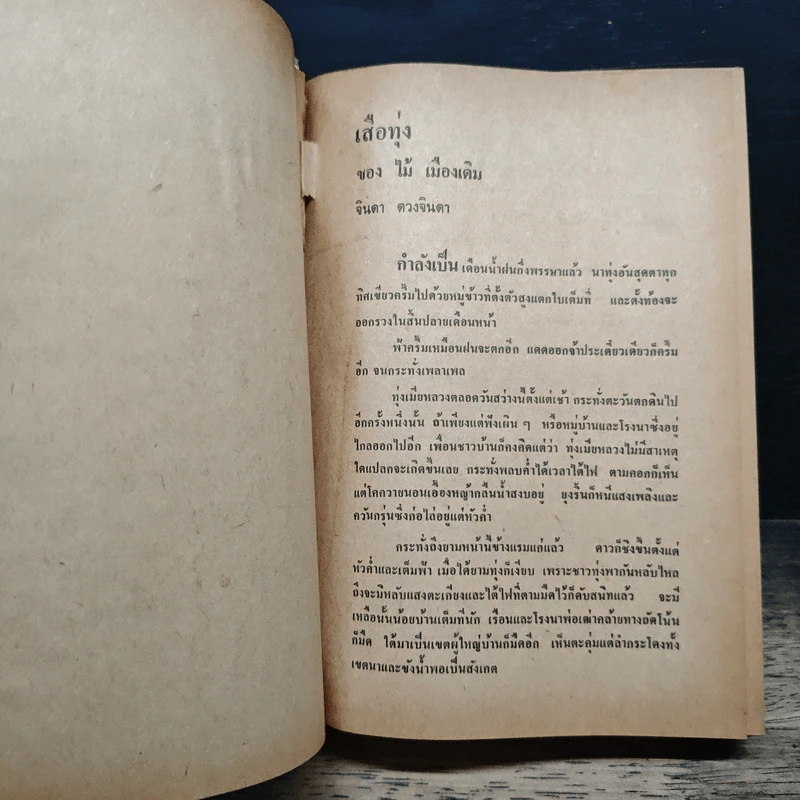 เสือทุ่ง
ของ ไม้ เมืองเดิม
จินดา ดวงจินดา
กำลังเป็น เดือนน้ำฝนกึ่งพรรษาแล้ว นาทุ่งอันสุดตาทุก
ทิศเขียวครึ้มไปด้วยหมู่ข้าวที่ตั้งตัวสูงแตกใบเต็มที่ และตั้งท้องจะ
ออกรวงในสิ้นปลายเดือนหน้า
ฟ้าครึ้มเหมือนฝนจะตกอีก แดดออกจ้าประเดี๋ยวเดียวก็ครึ้ม
อีก จนกระทั่งเพลาเพล
ทุ่งเมียหลวงตลอดวันสว่างนี้ตั้งแต่เช้า กระทั่งตะวันตกดินไป
อีกครั้งหนึ่งนั้น ถ้าเพียงแต่ฟังเผิน ๆ หรือหมู่บ้านและโรงนาซึ่งอยู่
ไกลออกไปอีก เพื่อนชาวบ้านก็คงคิดแต่ว่า ทุ่งเมียหลวงไม่มีสาเหตุ
ใดแปลกจะเกิดขึ้นเลย กระทั่งพลบค่ำได้เวลาใต้ไฟ ตามคอกก็เห็น
แต่โคควายนอนเอื้องหญ้ากลืนน้ำสงบอยู่ ยุงริ้นก็หนีแสงเพลิงและ
ควันกรุ่นซึ่งก่อไล่อยู่แต่หัวค่ำ
กระทั่งถึงยามหน้านี้ข้างแรมแก่แล้ว ดาวก็ชิงขึ้นตั้งแต่
หัวค่ำและเต็มฟ้า เมื่อได้ยามทุ่งก็เงียบ เพราะชาวทุ่งพากันหลับไหล
ถึงจะมีหลับแสงตะเกียงและใต้ไฟที่ตามมืดไว้ก็ดับสนิทแล้ว จะมี
เหลือนั้นน้อยบ้านเต็มที่นัก เรือนและโรงนาพ่อเฒ่าคล้ายทางลัดโน้น
ก็มืด ใต้มาเป็นเขตผู้ใหญ่บ้านก็มืดอีก เห็นตะคุ่มแต่ลำกระโดงทั้ง
เขตนาและขังน้ำพอเป็นสังเกต